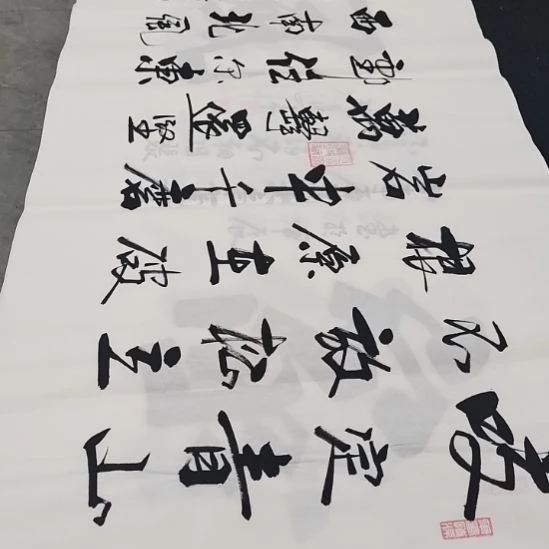 咬定青山
不放松立
根原在破
岩中千磨
萬擊還坚
劲任尔東
西南北風